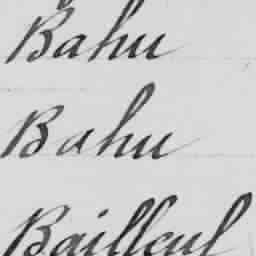 Bahu
Bahu
Bailleul